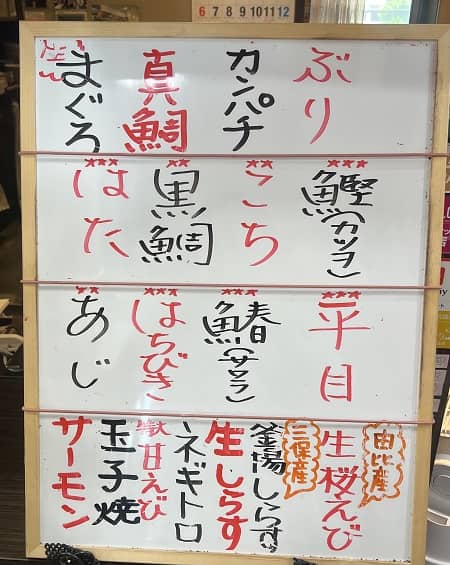 6 7 8 9 10 11 12
ぶり
カンパチ
真鯛
生
まぐろ
鰹(カツヲ)
こち
黒鯛
はた
平目
鰆(サワラ)
はちびき
あじ
由比産
生桜えび
三保産
釜揚しらす
生しらす
ネギトロ
甘えび
玉子焼
サーモン